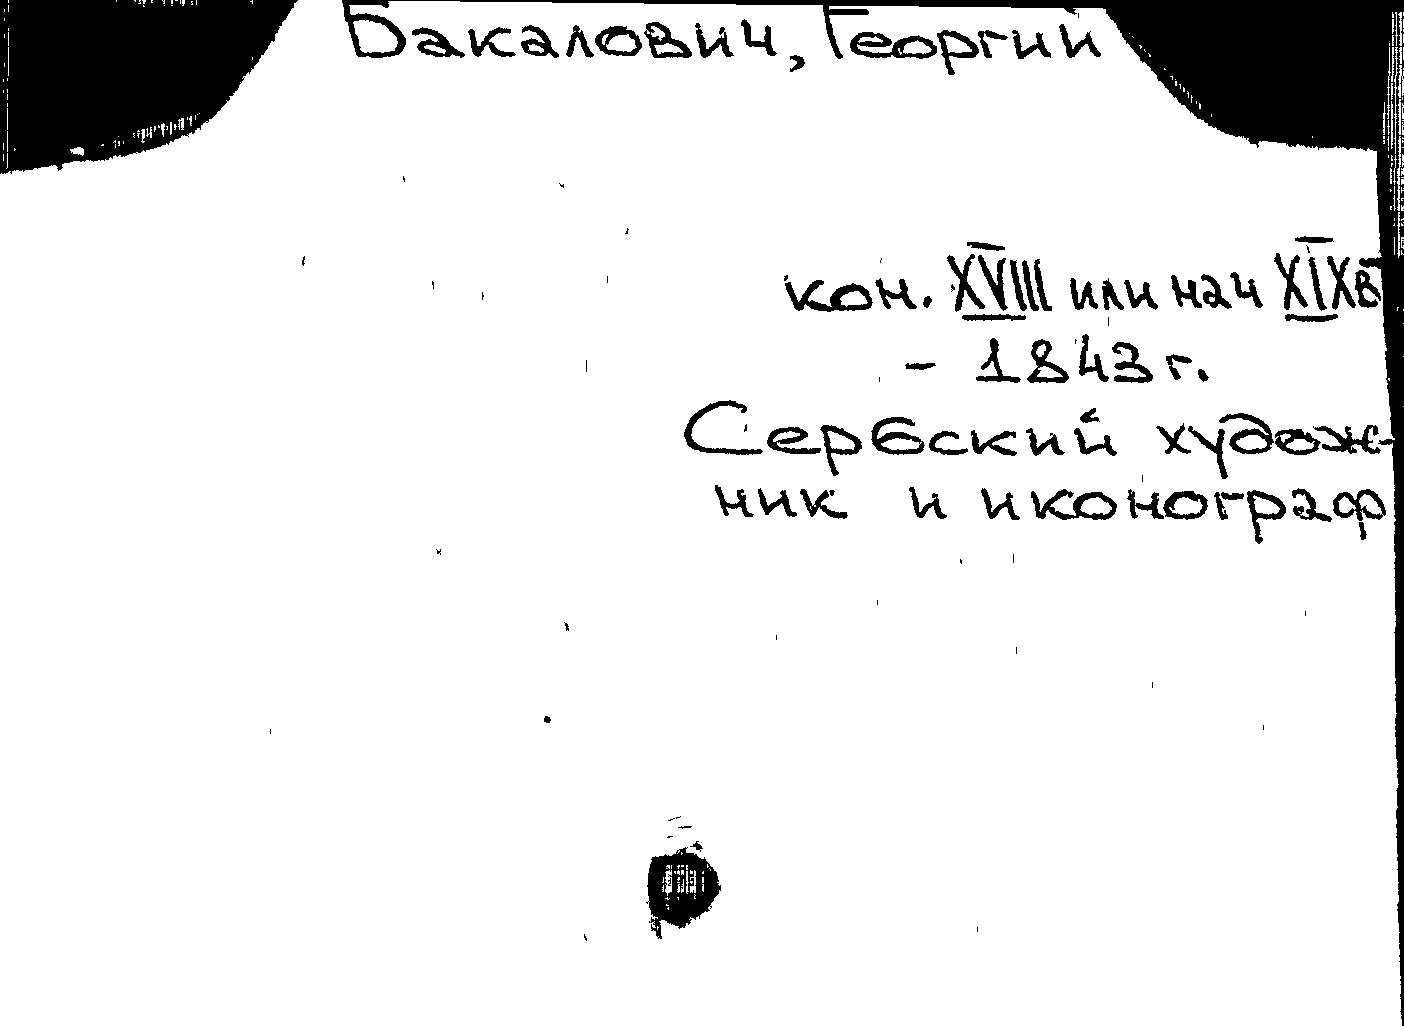 Бакалович, Георгий
кон. XVIII или нач XIXв
- 1843 г.
Сербский худож-
ник и иконограф